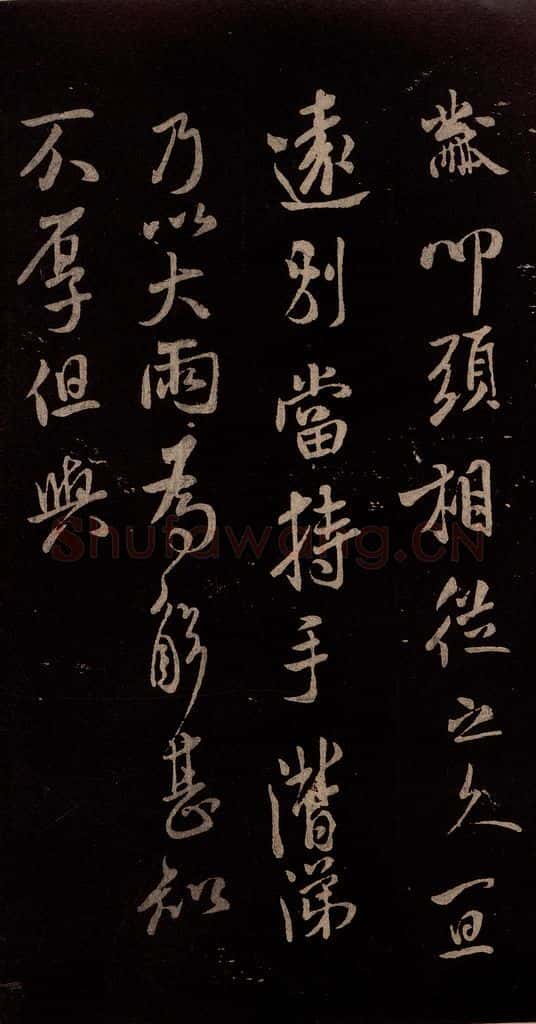 黻叩頭相從之久一旦
遠別當持手潸涕
乃以大雨為解甚知
不厚但與
Shufawang.CN